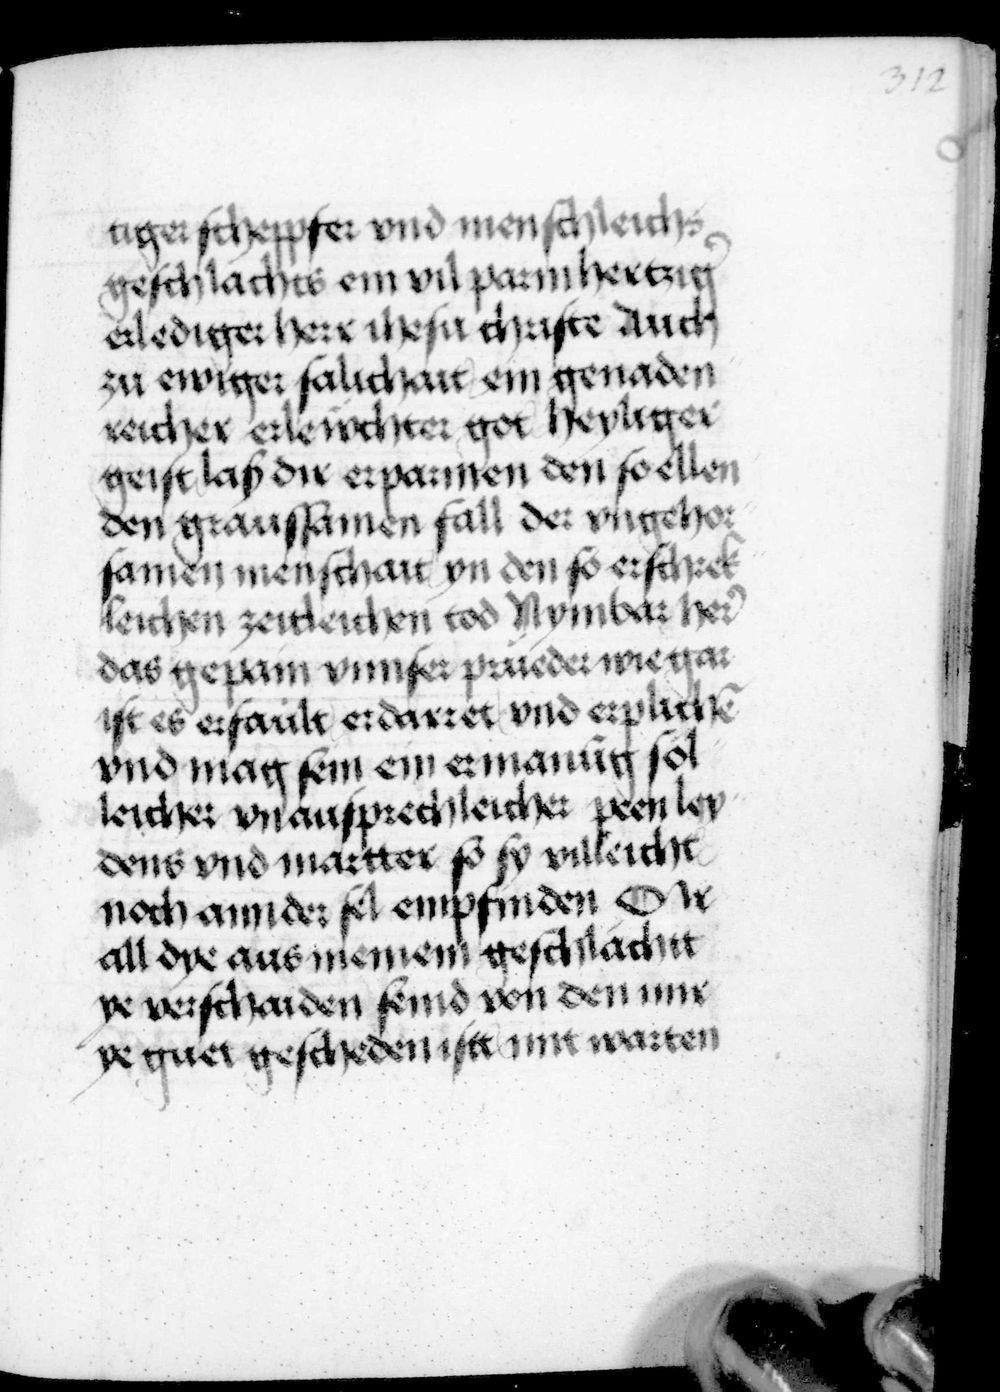 312
tiger schepfer vnd menschleichs
geschlächts ein vil parmhertzig̉
erlediger herr ihesu christe Auch
zu ewiger sälichait ein genaden
reicher erleẅchter got heyliger
geist laß dir erparmen den so ellen
den graussamen fall der vngehor
samen menschait yn den so erschrek
leichen zeitleichen tod Nymbar her̉
das gepain vnnser prüeder wie gar
ist es erfault erdarret vnd erplichē
vnd mag sein ein ermanūg söl
leicher vnausprechleicher peen ley
dens vnd martter so sy villeicht
noch annder sel empfinden Or
all dye aus meinem geschlächt
ye verschaiden seind von den mir
ye guet gescheden istt mit warten